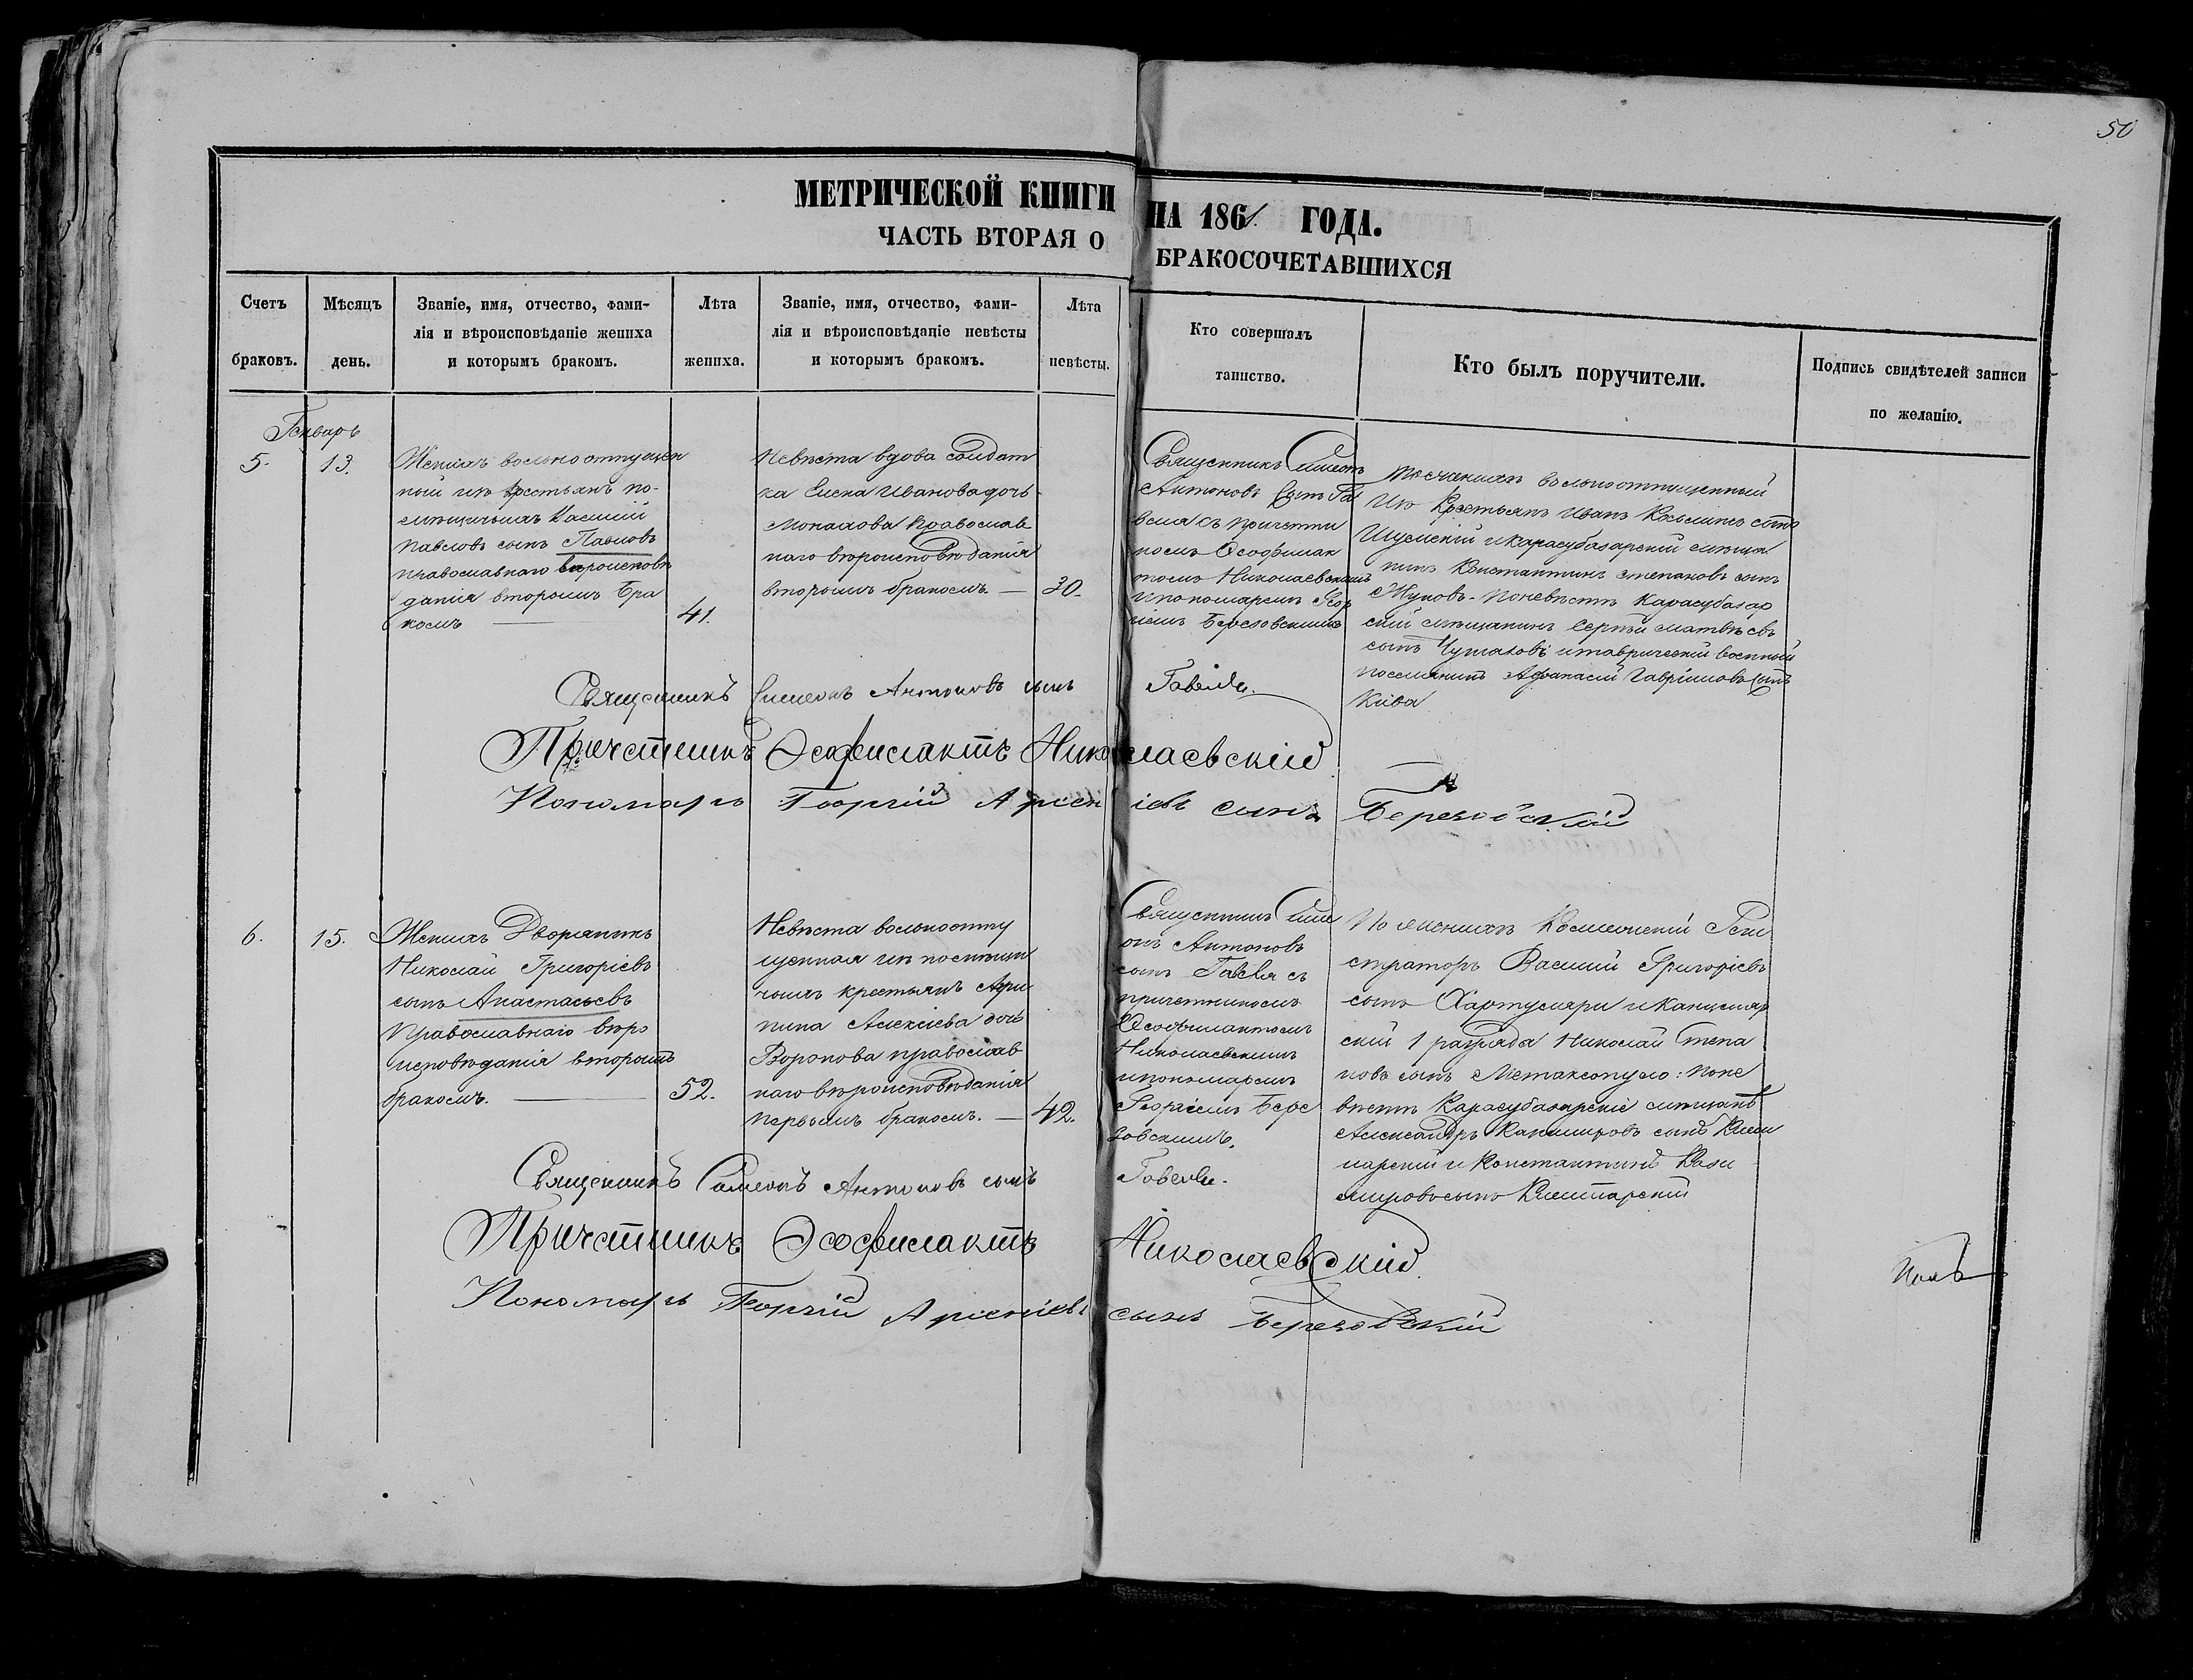 50
МЕТРИЧЕСКОЙ КНИГИ НА 1861. ГОДА.
ЧАСТЬ ВТОРАЯ О БРАКОСОЧЕТАВШИХСЯ
Счетъ
браковъ.
Мѣсяцъ
день.
Званіе, имя, отчество, фами-
лія и вѣроисповѣданіе жениха
и которымъ бракомъ.
Лѣта
жениха.
Званіе, имя, отчество, фами-
лія и вѣроисповѣданіе невѣсты
и которымъ бракомъ.
Лѣта
невѣсты.
Кто совершалъ
таинство.
Кто былъ поручители.
Подпись свидѣтелей записи
по желанію.
Генварь
5.
13.
Женихъ вольноотпущен
ный изъ крестьянъ по-
мѣщичьихъ Василій
Павловъ сынъ Павловъ
православнаго вѣроисповѣ
данія вторымъ бра
комъ
41.
Невѣста вдова солдат
ка Елена Иванова дочь
Монахова православ
наго вѣроисповѣданія
вторымъ бракомъ. —
30.
Священникъ Симеонъ
Антоновъ сынъ Га
веля съ причетни
комъ Ѳеофилак
томъ Николаевскимъ
и пономаремъ Геор
гіемъ Березовскимъ
По женихѣ вольноотпущенный
изъ крестьянъ Иванъ сынъ
и карасубазарскій мѣща
нинъ Константинъ Степановъ сынъ
Жуковъ. По невѣстѣ карасубазар
скій мѣщанинъ Сергѣй Матвѣевъ
сынъ и таврическій военный
поселянинъ Афанасій Гавріиловъ сынъ
Кива
Священникъ Симеонъ Антоновъ сынъ Гавеля.
Причетникъ Ѳеофилактъ Николаевскій
Пономарь Георгій Арсеніевъ сынъ Березовскій
6.
15.
Женихъ Дворянинъ
Николай Григоріевъ
сынъ Анастасьевъ
Православнаго вѣро
исповѣданія вторымъ
бракомъ.
52.
Невѣста вольноотпу
щенная изъ помѣщи
чьихъ крестьянъ Агри
пина Алексіева дочь
Воронова православ
наго вѣроисповѣданія
первымъ бракомъ. —
42.
Священникъ Симе
онъ Антоновъ
сынъ Гавеля съ
причетникомъ
Ѳеофилактомъ
Николаевскимъ
и пономаремъ
Георгіемъ Бере
зовскимъ.
По женихѣ Коллежскій Реги
страторъ Василій Григоріевъ
сынъ Хартуляри и канцеляр
скій 1 разряда Николай Степа
новъ сынъ Метаксопуло: по не
вѣстѣ Карасубазарскіе мѣщане
Александръ сынъ
и Константинъ Кази
міровъ сынъ
Священникъ Симеонъ Антоновъ сынъ Гавеля.
Причетникъ Ѳеофилактъ Николаевскій
Пономарь Георгій Арсеніевъ сынъ Березовскій